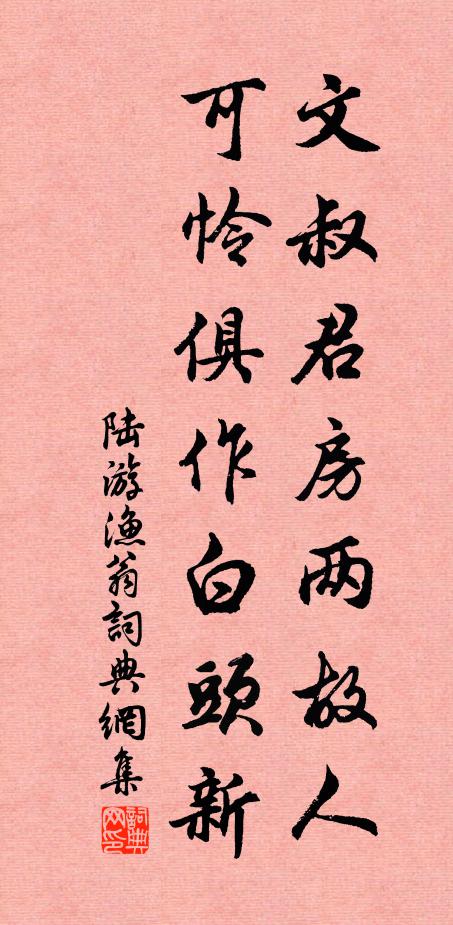 文叔君房两故人
可怜俱作白頭新
陆游漁翁詞典網集
詞典网印